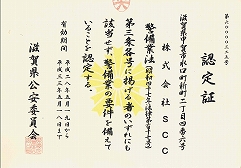 第六〇〇〇三三五号
認定証
滋賀県甲賀市水口町新町二丁目四番六号
株式会社SCC
警備業法(昭和四十七年法律第百十七号)
第三条各号に掲げる者のいずれにも
該当せず警備業の要件を備えて
いることを認定する。
有効期間
平成二八年五月一九日から
平成三三年五月一八日まで
滋賀県公安委員会